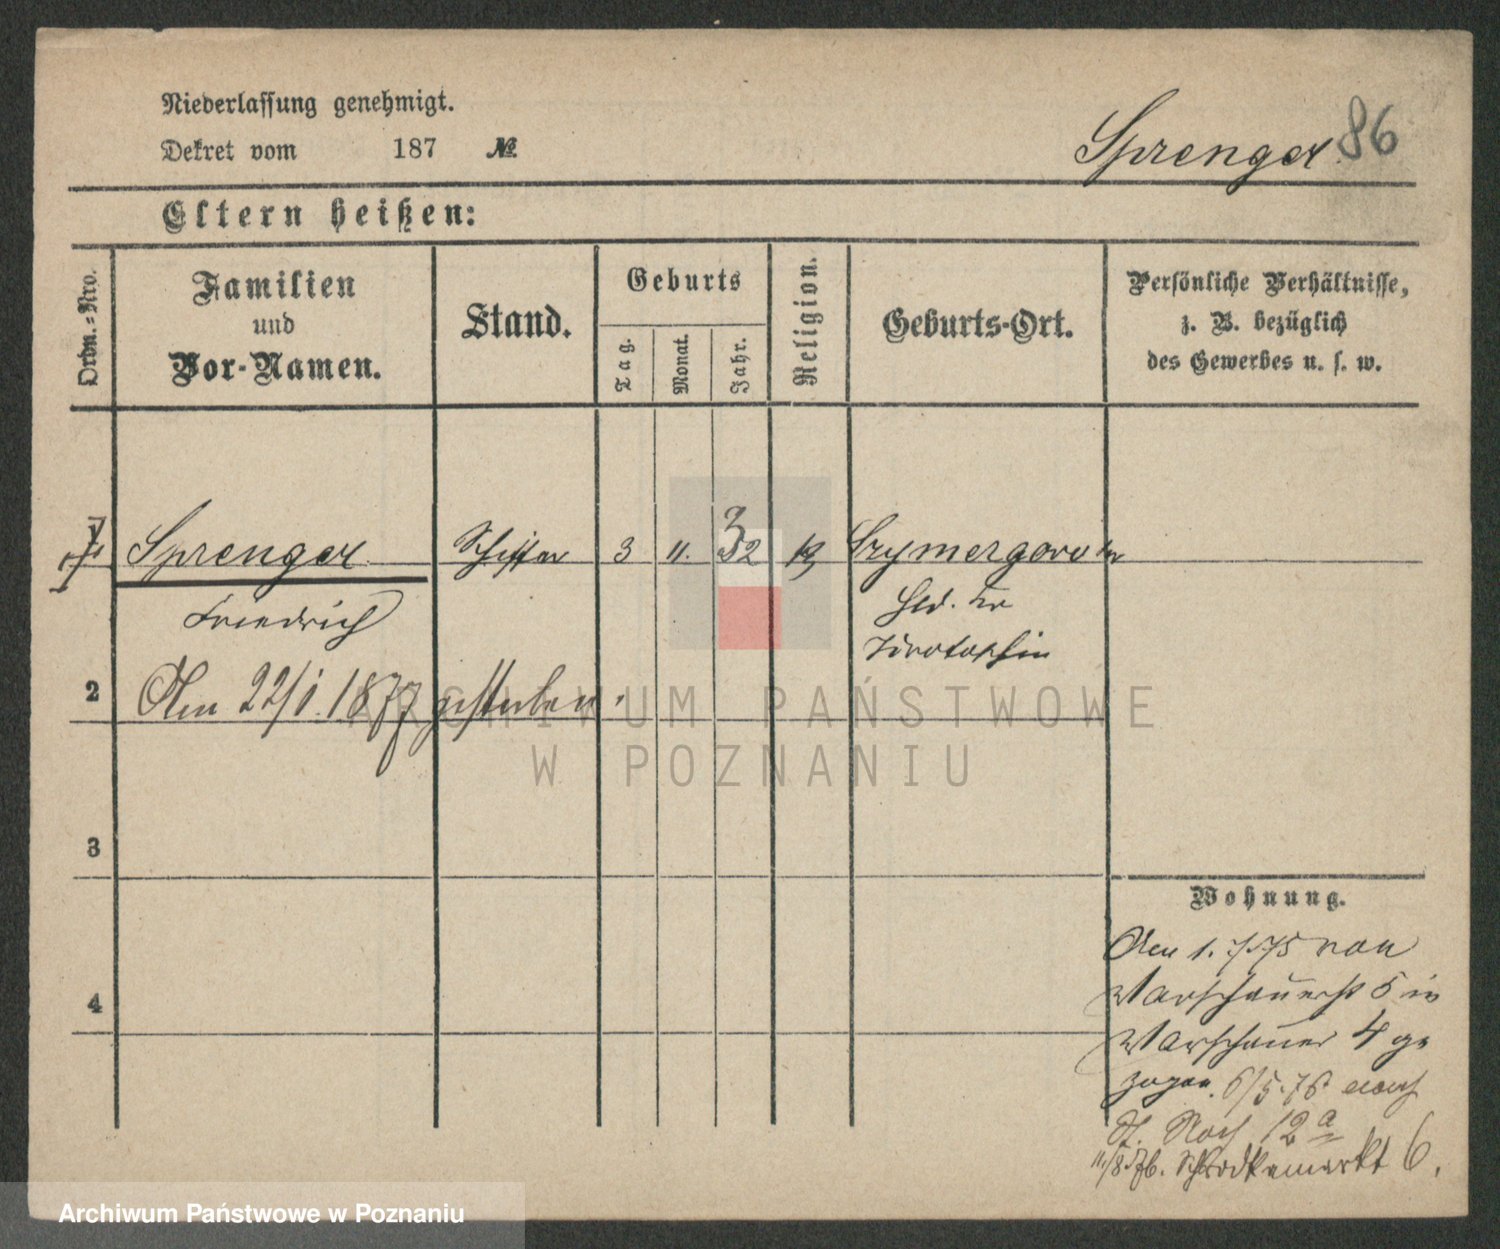 Niederlassung genehmigt.
Dekret vom 187 №
Sprenger 86
Eltern heißen:
Ordn.-Nro.
Familien
und
Vor-Namen.
Stand.
Geburts
Tag.
Monat.
Jahr.
Religion.
Geburts-Ort.
Persönliche Verhältnisse,
z. B. bezüglich
des Gewerbes u. s. w.
Sprenger Schiffer 3 11. 32
Friedrich
2 Am 22/1. 1877 gestorben.
3
4
Wohnung.
Am 1. 7. 75 von
Warschauerst 5 in
Warschauer 4 ge
zogen. 6/5. 76 nach
St. Roch 12a
11/8. 76. Schrodkamarkt 6.
ARCHIWUM PAŃSTWOWE
W POZNANIU
Archiwum Państwowe w Poznaniu